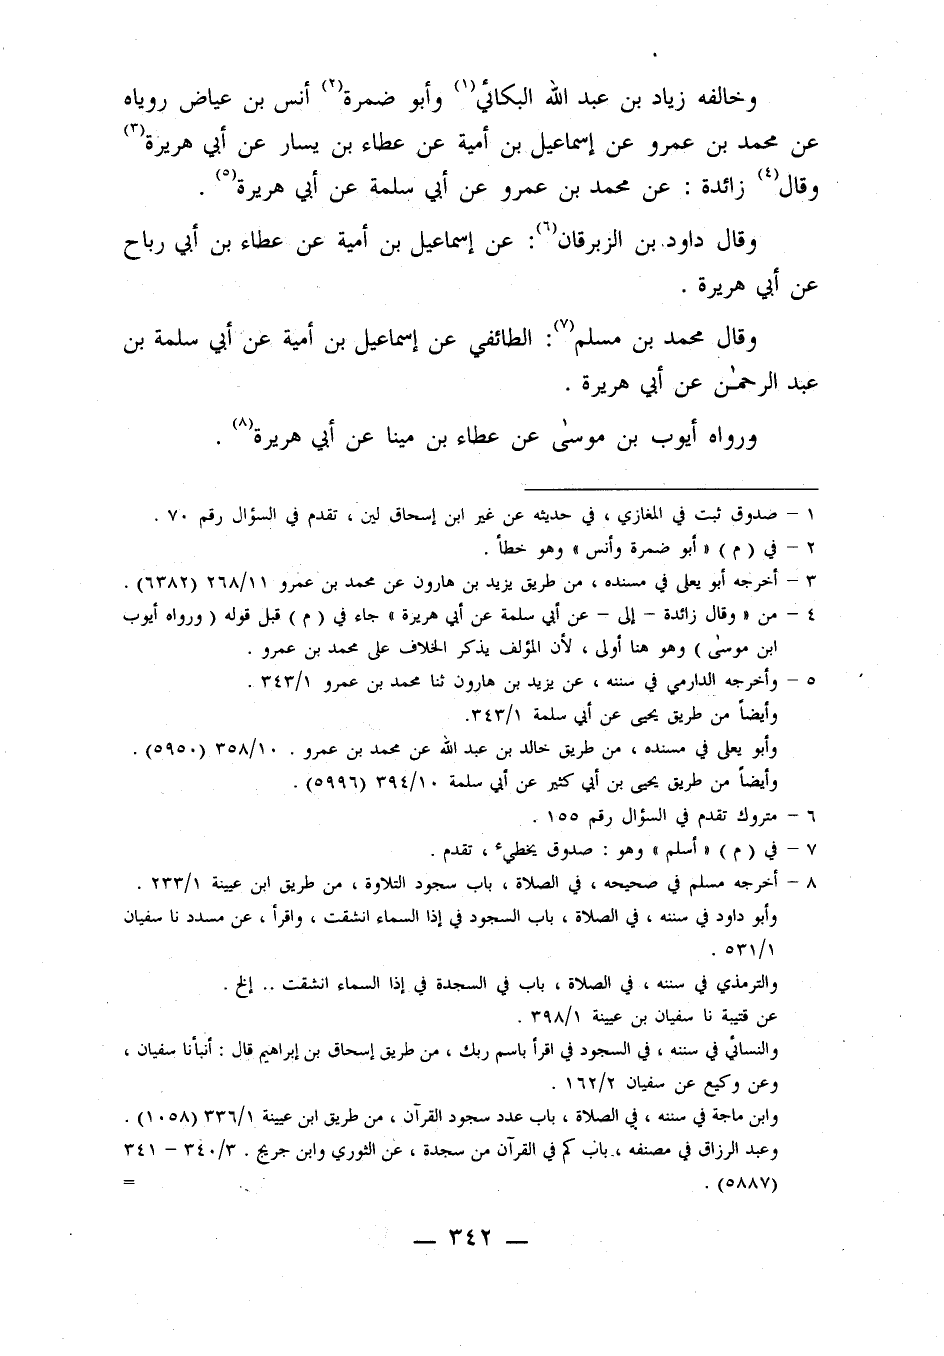 وخالفه زياد بن عبد الله البكائي(١) وأبو ضمرة(٢) أنس بن عياض روياه
عن محمد بن عمرو عن إسماعيل بن أمية عن عطاء بن يسار عن أبي هريرة(٣)
وقال(٤) زائدة : عن محمد بن عمرو عن أبي سلمة عن أبي هريرة(٥) .
وقال داود بن الزبرقان(٦): عن إسماعيل بن أمية عن عطاء بن أبي رباح
عن أبي هريرة .
وقال محمد بن مسلم(٧): الطائفي عن إسماعيل بن أمية عن أبي سلمة بن
عبد الرحمٰن عن أبي هريرة .
ورواه أيوب بن موسىٰ عن عطاء بن مينا عن أبي هريرة(٨) .
١ – صدوق ثبت في المغازي ، في حديثه عن غير ابن إسحاق لين ، تقدم في السؤال رقم ٧٠ .
٢ – في ( م ) « أبو ضمرة وأنس » وهو خطأ .
٣ – أخرجه أبو يعلى في مسنده ، من طريق يزيد بن هارون عن محمد بن عمرو ٢٦٨/١١ (٦٣٨٢) .
٤ – من « وقال زائدة – إلى – عن أبي سلمة عن أبي هريرة » جاء في ( م ) قبل قوله ( ورواه أيوب
ابن موسىٰ ) وهو هنا أولى ، لأن المؤلف يذكر الخلاف على محمد بن عمرو .
٥ – وأخرجه الدارمي في سننه ، عن يزيد بن هارون ثنا محمد بن عمرو ٣٤٣/١ .
وأيضاً من طريق يحيى عن أبي سلمة ٣٤٣/١.
وأبو يعلى في مسنده ، من طريق خالد بن عبد الله عن محمد بن عمرو . ٣٥٨/١٠ (٥٩٥٠) .
وأيضاً من طريق يحيى بن أبي كثير عن أبي سلمة ٣٩٤/١٠ (٥٩٩٦) .
٦ – متروك تقدم في السؤال رقم ١٥٥ .
٧ – في ( م ) « أسلم » وهو : صدوق يخطيء ، تقدم .
٨ – أخرجه مسلم في صحيحه ، في الصلاة ، باب سجود التلاوة ، من طريق ابن عيينة ٢٣٣/١ .
وأبو داود في سننه ، في الصلاة ، باب السجود في إذا السماء انشقت ، واقرأ ، عن مسدد نا سفيان
٥٣١/١ .
والترمذي في سننه ، في الصلاة ، باب في السجدة في إذا السماء انشقت .. إلخ .
عن قتيبة نا سفيان بن عيينة ٣٩٨/١ .
والنسائي في سننه ، في السجود في اقرأ باسم ربك ، من طريق إسحاق بن إبراهيم قال : أنبأنا سفيان ،
وعن وكيع عن سفيان ١٦٢/٢ .
وابن ماجة في سننه ، في الصلاة ، باب عدد سجود القرآن ، من طريق ابن عيينة ٣٣٦/١ (١٠٥٨) .
وعبد الرزاق في مصنفه ، باب كم في القرآن من سجدة ، عن الثوري وابن جريج . ٣٤٠/٣ – ٣٤١
(٥٨٨٧) . =
— ٣٤٢ —